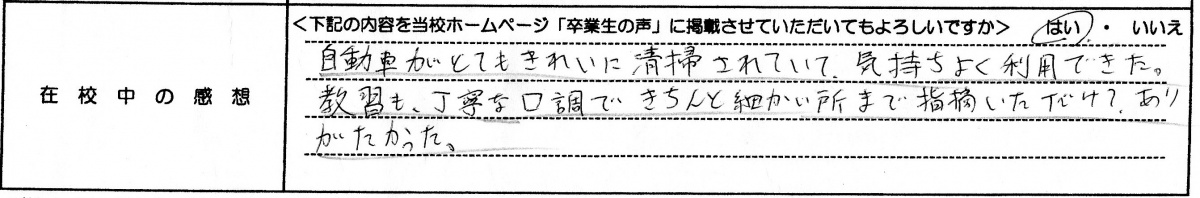 <下記の内容を当校ホームページ「卒業生の声」に掲載させていただいてもよろしいですか> はい ・ いいえ
在校中の感想
自動車がとてもきれいに清掃されていて、気持ちよく利用できた。
教習も、丁寧な口調できちんと細かい所まで指摘いただけて、あり
がたかった。